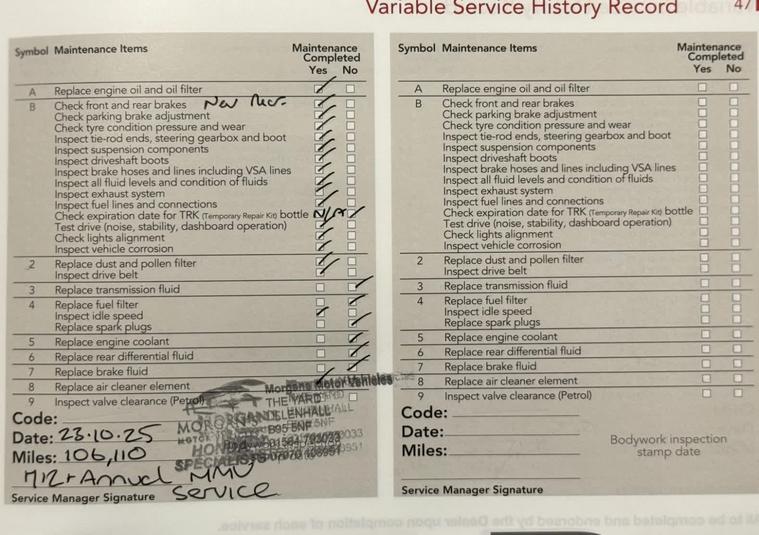 Variable Service History Record 47
Symbol Maintenance Items Maintenance Completed Yes No
A Replace engine oil and oil filter
B Check front and rear brakes New
Check parking brake adjustment
Check tyre condition pressure and wear
Inspect tie-rod ends, steering gearbox and boot
Inspect suspension components
Inspect driveshaft boots
Inspect brake hoses and lines including VSA lines
Inspect all fluid levels and condition of fluids
Inspect exhaust system
Inspect fuel lines and connections
Check expiration date for TRK (Temporary Repair Kit) bottle N/A
Test drive (noise, stability, dashboard operation)
Check lights alignment
Inspect vehicle corrosion
2 Replace dust and pollen filter
Inspect drive belt
3 Replace transmission fluid
4 Replace fuel filter
Inspect idle speed
Replace spark plugs
5 Replace engine coolant
6 Replace rear differential fluid
7 Replace brake fluid
8 Replace air cleaner element
9 Inspect valve clearance (Petrol)
Morgans Motor Vehicles
THE YARD
B95 5NF
HONDA
SPECIALISTS
Code:
Date: 23.10.25
Miles: 106,110
Annual MMV
Service
Service Manager Signature
Symbol Maintenance Items Maintenance Completed Yes No
A Replace engine oil and oil filter
B Check front and rear brakes
Check parking brake adjustment
Check tyre condition pressure and wear
Inspect tie-rod ends, steering gearbox and boot
Inspect suspension components
Inspect driveshaft boots
Inspect brake hoses and lines including VSA lines
Inspect all fluid levels and condition of fluids
Inspect exhaust system
Inspect fuel lines and connections
Check expiration date for TRK (Temporary Repair Kit) bottle
Test drive (noise, stability, dashboard operation)
Check lights alignment
Inspect vehicle corrosion
2 Replace dust and pollen filter
Inspect drive belt
3 Replace transmission fluid
4 Replace fuel filter
Inspect idle speed
Replace spark plugs
5 Replace engine coolant
6 Replace rear differential fluid
7 Replace brake fluid
8 Replace air cleaner element
9 Inspect valve clearance (Petrol)
Code:
Date:
Miles:
Bodywork inspection
stamp date
Service Manager Signature